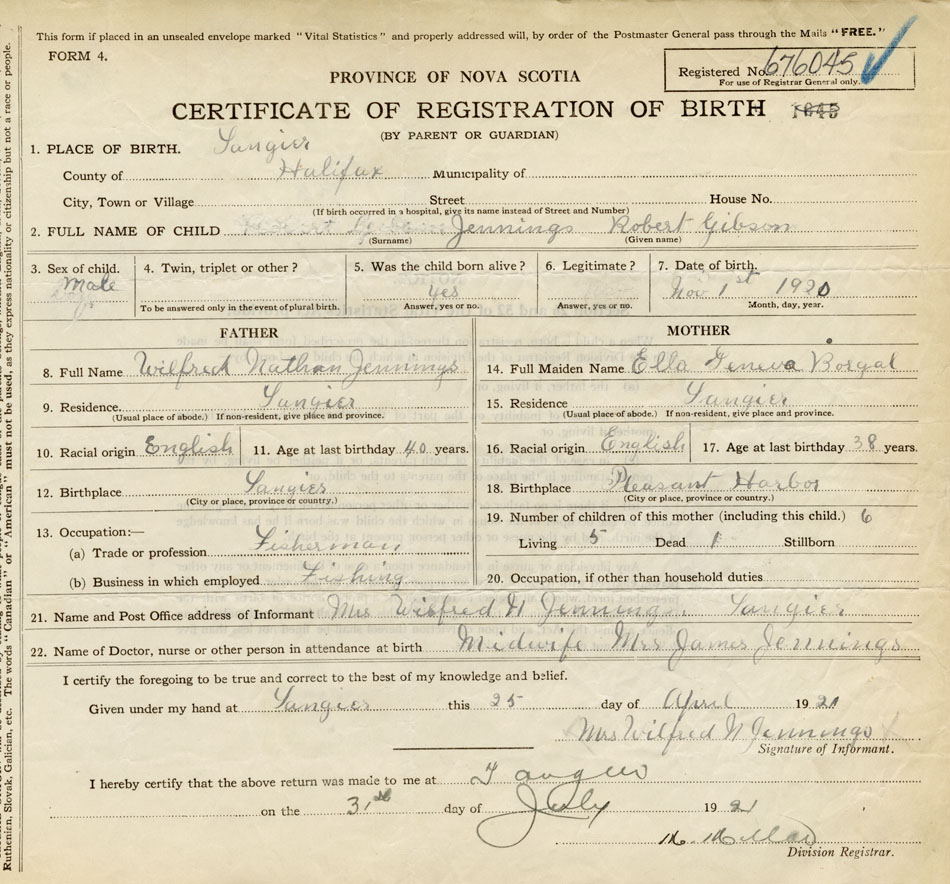 This form if placed in an unsealed envelope marked "Vital Statistics" and properly addressed will, by order of the Postmaster General pass through the Mails "FREE."
FORM 4.
Registered No. 676045
For use of Registrar General only.
PROVINCE OF NOVA SCOTIA
CERTIFICATE OF REGISTRATION OF BIRTH 1645
(BY PARENT OR GUARDIAN)
1. PLACE OF BIRTH. Tangier
County of Halifax Municipality of
City, Town or Village Street House No.
(If birth occurred in a hospital, give its name instead of Street and Number)
2. FULL NAME OF CHILD Jennings Robert Gibson
(Surname) (Given name)
3. Sex of child. Male
4. Twin, triplet or other?
To be answered only in the event of plural birth.
5. Was the child born alive? yes
Answer, yes or no.
6. Legitimate?
Answer, yes or no.
7. Date of birth. Nov 1st 1920
Month, day, year.
FATHER
8. Full Name Wilfred Nathan Jennings
9. Residence. Tangier
(Usual place of abode.) If non-resident, give place and province.
10. Racial origin English 11. Age at last birthday 40 years.
12. Birthplace Tangier
(City or place, province or country.)
13. Occupation:—
(a) Trade or profession Fisherman
(b) Business in which employed Fishing
MOTHER
14. Full Maiden Name Ella Geneva
15. Residence Tangier
(Usual place of abode.) If non-resident, give place and province.
16. Racial origin English 17. Age at last birthday 38 years.
18. Birthplace Pleasant Harbor
(City or place, province or country.)
19. Number of children of this mother (including this child.) 6
Living 5 Dead 1 Stillborn
20. Occupation, if other than household duties
21. Name and Post Office address of Informant Mrs Wilfred N Jennings Tangier
22. Name of Doctor, nurse or other person in attendance at birth Midwife Mrs James Jennings
I certify the foregoing to be true and correct to the best of my knowledge and belief.
Given under my hand at Tangier this 25 day of April 1921
Mrs Wilfred N Jennings
Signature of Informant.
I hereby certify that the above return was made to me at Tangier
on the 31st day of July 1921
Division Registrar.
Ruthenian, Slovak, Galician, etc. The words "Canadian" or "American" must not be used, as they express nationality or citizenship but not a race or people.